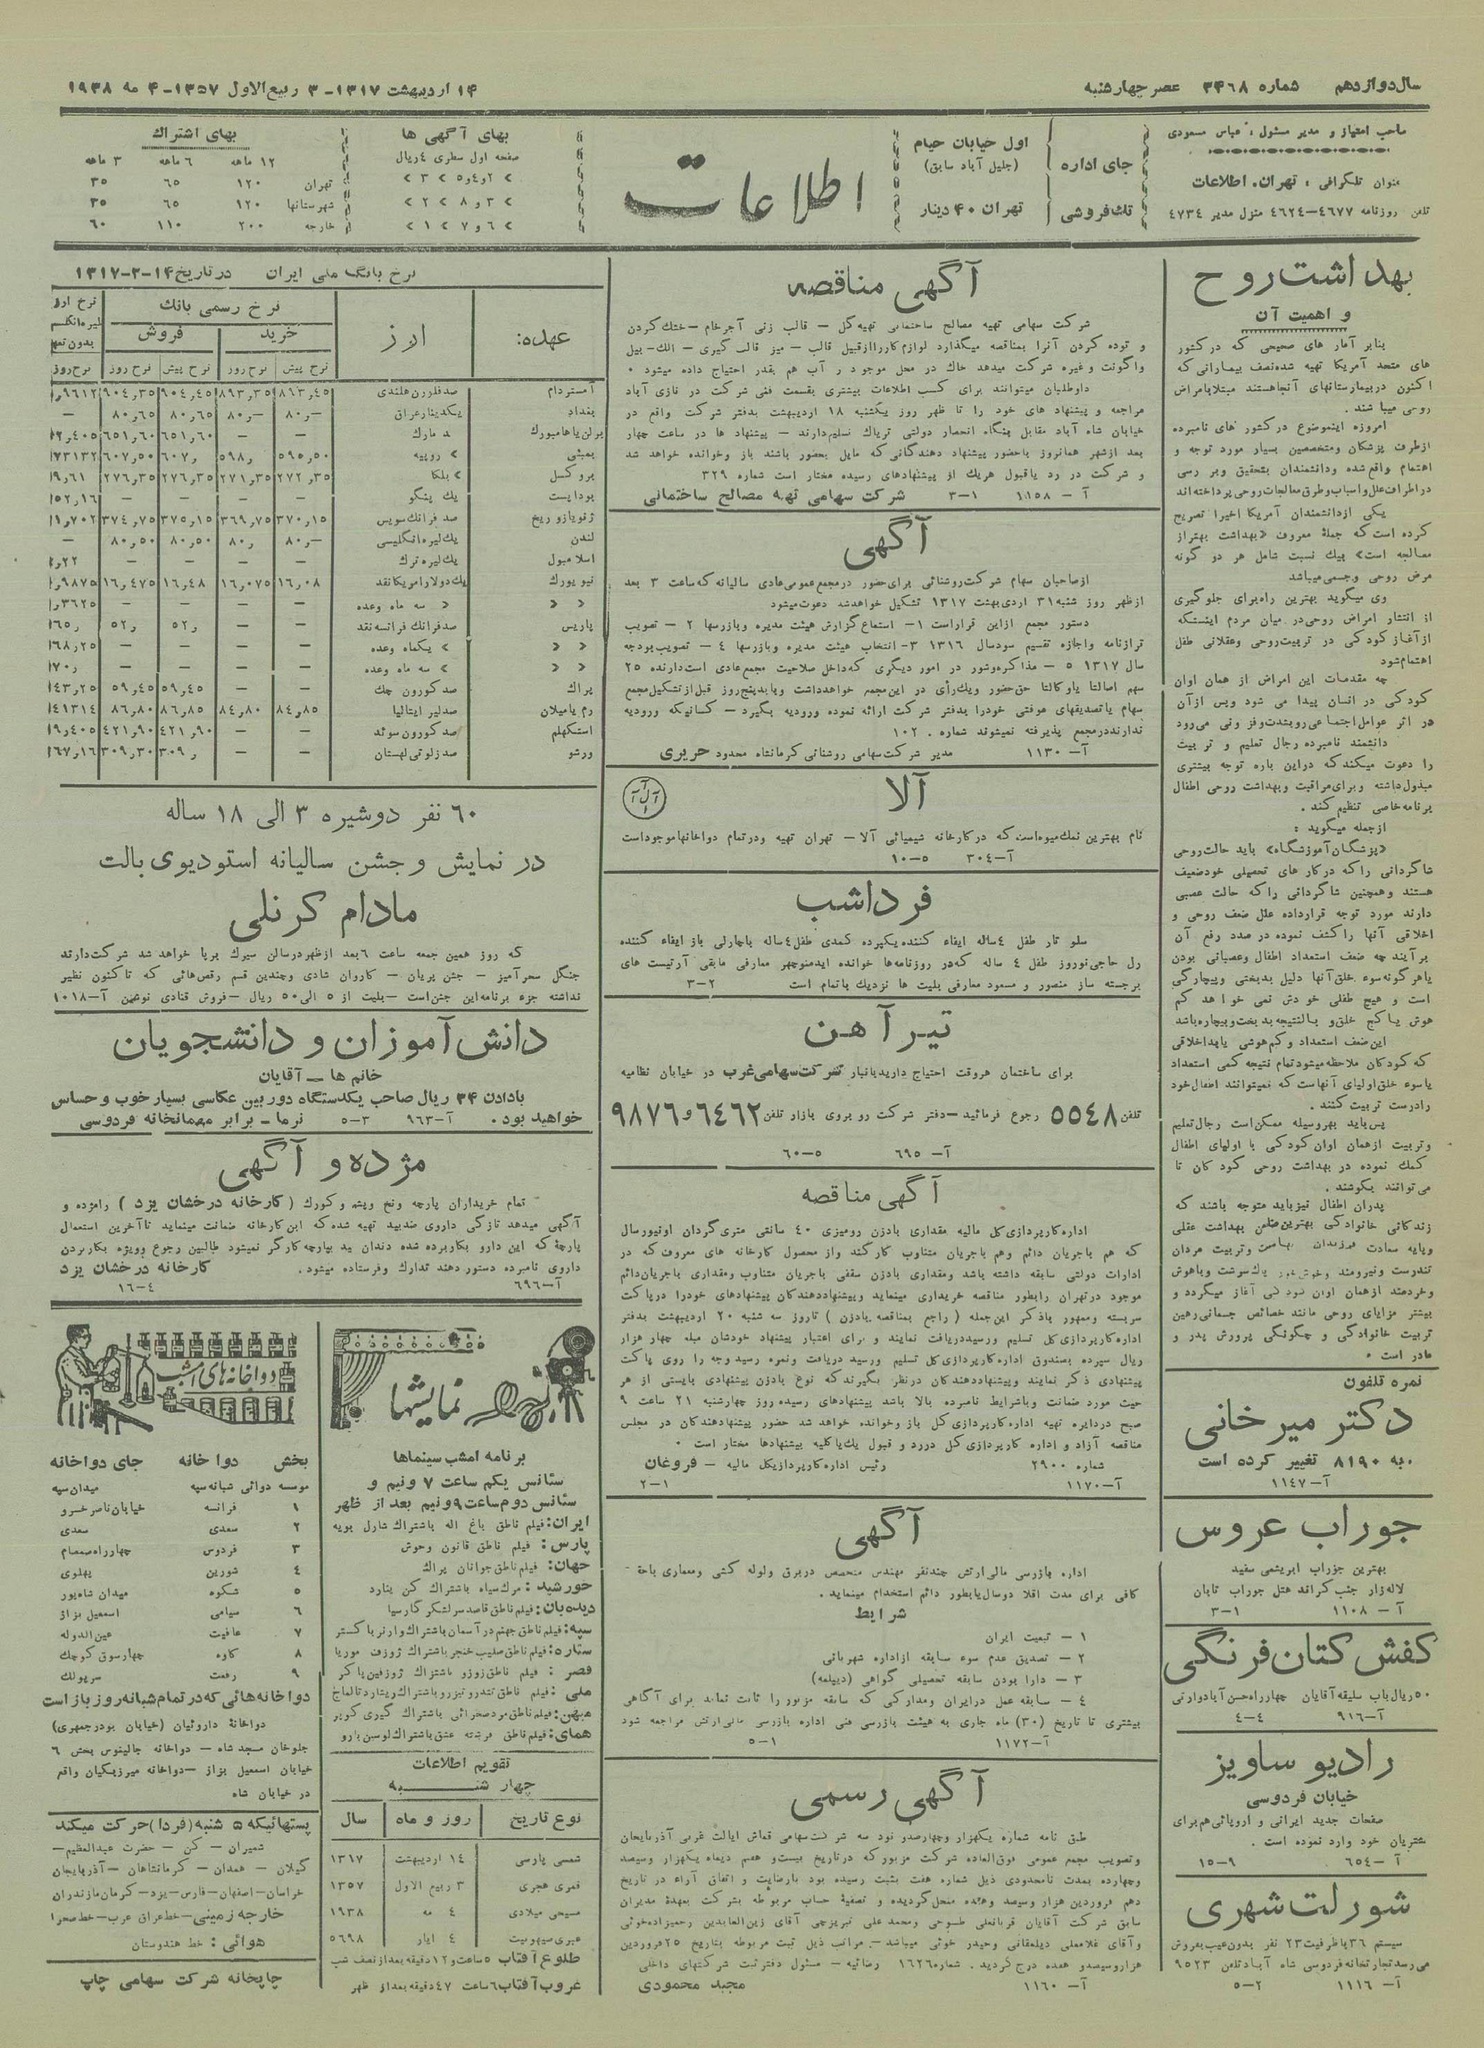 سال دوازدهم شماره ۳۴۶۸ عصر چهارشنبه
۱۴ اردیبهشت ۱۳۱۷- ۳ ربیع‌الاول ۱۳۵۷- ۴ مه ۱۹۳۸
صاحب امتیاز و مدیر مسئول : عباس مسعودی
عنوان تلگرافی : تهران. اطلاعات
تلفن روزنامه ۴۶۷۷-۴۶۲۴ منزل مدیر ۴۷۳۴
جای اداره
اول خیابان خیام
(جلیل آباد سابق)
تك فروشی
تهران ۴۰ دینار
اطلاعات
بهای آگهی ها
صفحه اول سطری ۴ ریال
> ۲و۴و۵ > ۳ >
> ۳ و ۸ > ۲ >
> ۶ و ۷ > ۱ >
بهای اشتراك
۱۲ ماهه ۶ ماهه ۳ ماهه
تهران ۱۲۰ ۶۵ ۳۵
شهرستانها ۱۲۰ ۶۵ ۳۵
خارجه ۲۰۰ ۱۱۰ ۶۰
بهداشت روح
و اهمیت آن
بنابر آمار های صحیحی که در کشور
های متحد آمریکا تهیه شده نصف بیمارانی که
اکنون در بیمارستانهای آنجا هستند مبتلا بامراض
روحی میبا شند .
امروزه اینموضوع در کشور های نامبرده
ازطرف پزشکان ومتخصصین بسیار مورد توجه و
اهتمام واقع شده ودانشمندان بتحقیق وبر رسی
در اطراف علل واسباب وطرق معالجات روحی پرداخته اند
یکی ازدانشمندان آمریکا اخیرا تصریح
کرده است که جملهٔ معروف «بهداشت بهتر از
معالجه است» بیك نسبت شامل هر دو گونه
مرض روحی وجسمی میباشد
وی میگوید بهترین راه برای جلو گیری
از انتشار امراض روحی در میان مردم اینستکه
از آغاز کودکی در تربیت روحی وعقلانی طفل
اهتمام شود
چه مقدمات این امراض از همان اوان
کودکی در انسان پیدا می شود وپس از آن
در اثر عوامل اجتماعی رو بشدت وفزونی می‌رود
دانشمند نامبرده رجال تعلیم و تربیت
را دعوت میکند که در این باره توجه بیشتری
مبذول داشته وبرای مراقبت وبهداشت روحی اطفال
برنامه خاصی تنظیم کنند .
ازجمله میگوید :
«پزشگان آموزشگاه» باید حالت روحی
شاگردانی را که در کار های تحصیلی خودضعیف
هستند و همچنین شاگردانی را که حالت عصبی
دارند مورد توجه قرارداده علل ضعف روحی و
اخلاقی آنها را کشف نموده در صدد رفع آن
بر آیند چه ضعف استعداد اطفال وعصبانی بودن
یا هرگونه سوء خلق آنها دلیل بدبختی وبیچارگی
است و هیچ طفلی خودش نمی خواهد کم
هوش یا کج خلق و بالنتیجه بدبخت وبیچاره باشد
این ضعف استعداد و کم هوشی یا بداخلاقی
که کودکان ملاحظه میشود تمام نتیجه کمی استعداد
یا سوء خلق اولیای آنهاست که نمیتوانند اطفال خود
را درست تربیت کنند .
پس باید بهروسیله ممکن است رجال تعلیم
وتربیت از همان اوان کودکی با اولیای اطفال
کمك نموده در بهداشت روحی کودکان تا
می توانند بکوشند .
پدران اطفال نیز باید متوجه باشند که
زندگانی خانوادگی بهترین ضامن بهداشت عقلی
وپایه سعادت فرزندان بهاست وتربیت مردان
تندرست ونیرومند وخوش پاك سرشت وباهوش
وخردمند ازهمان اوان کودکی آغاز میگردد و
بیشتر مزایای روحی مانند خصائص جسمانی رهین
تربیت خانوادگی و چگونگی پرورش پدر و
مادر است .
نمره تلفون
دکتر میر خانی
به ۸۱۹۰ تغییر کرده است
آ-۱۱۴۷
جوراب عروس
بهترین جوراب ابریشمی سفید
لاله زار جنب گراند هتل جوراب تابان
آ- ۱۱۰۸ ۱-۳
کفش کتان فرنگی
۵۰ ریال باب سلیقه آقایان چهارراه حسن آباد وارتی
آ-۹۱۶ ۴-۴
رادیو ساویز
خیابان فردوسی
صفحات جدید ایرانی و اروپائی هم برای
مشتریان خود وارد نموده است .
آ-۶۵۴ ۹-۱۵
شورلت شهری
سیستم ۳۶ با ظرفیت ۲۳ نفر بدون عیب بفروش
می رسد تجارتخانه فردوسی شاه آباد تلفن ۹۵۲۳
آ- ۱۱۱۶ ۲-۵
آگهی مناقصه
شرکت سهامی تهیه مصالح ساختمانی تهیه گل - قالب زنی آجر خام - خشك کردن
و توده کردن آنرا بمناقصه میگذارد لوازم کار را از قبیل قالب - میز قالب گیری - الك - بیل
واگونت و غیره شرکت میدهد خاك در محل موجود و آب هم بقدر احتیاج داده میشود .
داوطلبان میتوانند برای کسب اطلاعات بیشتری بقسمت فنی شرکت در نازی آباد
مراجعه و پیشنهاد های خود را تا ظهر روز یکشنبه ۱۸ اردیبهشت بدفتر شرکت واقع در
خیابان شاه آباد مقابل بنگاه انحصار دولتی تریاك تسلیم دارند - پیشنهاد ها در ساعت چهار
بعد از ظهر همانروز باحضور پیشنهاد دهندگانی که مایل بحضور باشند باز وخوانده خواهد شد
و شرکت در رد یا قبول هریك از پیشنهادهای رسیده مختار است شماره ۳۲۹
آ- ۱۱۵۸ ۱-۳ شرکت سهامی تهیه مصالح ساختمانی
آگهی
از صاحبان سهام شرکت روشنائی برای حضور در مجمع عمومی عادی سالیانه که ساعت ۳ بعد
ازظهر روز شنبه ۳۱ اردی بهشت ۱۳۱۷ تشکیل خواهد شد دعوت میشود
دستور مجمع از این قرار است ۱- استماع گزارش هیئت مدیره وبازرسها ۲ - تصویب
ترازنامه واجازه تقسیم سود سال ۱۳۱۶ ۳- انتخاب هیئت مدیره وبازرسها ۴ - تصویب بودجه
سال ۱۳۱۷ ۵ - مذاکره وشور در امور دیگری که داخل صلاحیت مجمع عادی است دارنده ۲۵
سهم اصالتا یا وکالتا حق حضور ویك رأی در این مجمع خواهد داشت وباید پنج روز قبل از تشکیل مجمع
سهام یا تصدیقهای موقتی خود را بدفتر شرکت ارائه نموده ورودیه بگیرد - کسانیکه ورودیه
ندارند در مجمع پذیرفته نمیشوند شماره . ۱۰۲
آ- ۱۱۳۰ مدیر شرکت سهامی روشنائی کرمانشاه محدود حریری
آلا
نام بهترین نمك میوه است که در کارخانه شیمیائی آلا - تهران تهیه ودرتمام دواخانها موجود است
آ-۳۰۴ ۵-۱۰
فرداشب
سلو تار طفل ۴ ساله ایفاء کننده یکپرده کمدی طفل ۴ ساله باچارلی باز ایفاء کننده
رل حاجی نوروز طفل ۴ ساله که در روزنامه‌ها خوانده اید منوچهر معارفی مابقی آرتیست های
برجسته ساز منصور و مسعود معارفی بلیت ها نزدیك باتمام است ۲-۳
تیر آهن
برای ساختمان هروقت احتیاج دارید بانبار شرکت سهامی غرب در خیابان نظامیه
تلفن ۵۵۴۸ رجوع فرمائید - دفتر شرکت رو بروی بازار تلفن ۶۴۶۲ و ۹۸۷۶
آ- ۶۹۵ ۵-۶۰
آگهی مناقصه
اداره کارپردازی کل مالیه مقداری بادزن رومیزی ۴۰ سانتی متری گردان اونیورسال
که هم باجریان دائم وهم باجریان متناوب کار کند واز محصول کارخانه های معروف که در
ادارات دولتی سابقه داشته باشد ومقداری بادزن سقفی باجریان متناوب ومقداری باجریان دائم
موجود در تهران را بطور مناقصه خریداری مینماید وپیشنهاد دهندگان پیشنهادهای خود را در پاکت
سربسته وممهور باذکر این جمله ( راجع بمناقصه بادزن ) تا روز سه شنبه ۲۰ اردیبهشت بدفتر
اداره کارپردازی کل تسلیم ورسید دریافت نمایند و برای اعتبار پیشنهاد خودشان مبلغ چهار هزار
ریال سپرده بصندوق اداره کارپردازی کل تسلیم ورسید دریافت ونمره رسید وجه را روی پاکت
پیشنهادی ذکر نمایند وپیشنهاد دهندگان در نظر بگیرند که نوع بادزن پیشنهادی بایستی از هر
حیث مورد ضمانت وباشرایط نامبرده بالا باشد پیشنهادهای رسیده روز چهارشنبه ۲۱ ساعت ۹
صبح در دایره تهیه اداره کارپردازی کل باز وخوانده خواهد شد حضور پیشنهاد دهندگان در مجلس
مناقصه آزاد و اداره کارپردازی کل در رد و قبول یك یا کلیه پیشنهادها مختار است .
شماره ۲۹۰۰ رئیس اداره کارپردازیکل مالیه - فروغان
آ-۱۱۷۰ ۱-۲
آگهی
اداره بازرسی مالی ارتش چند نفر مهندس متخصص در برق ولوله کشی ومعماری با حقوق
کافی برای مدت اقلا دوسال یا بطور دائم استخدام مینماید .
شرایط
۱ - تبعیت ایران
۲ - تصدیق عدم سوء سابقه از اداره شهربانی
۳ - دارا بودن سابقه تحصیلی گواهی (دیپلمه)
۴ - سابقه عمل در ایران ومدارکی که سابقه مزبور را ثابت نماید برای آگاهی
بیشتری تا تاریخ (۳۰) ماه جاری به هیئت بازرسی فنی اداره بازرسی مالی ارتش مراجعه شود
آ-۱۱۷۲ ۱-۵
آگهی رسمی
طبق نامه شماره یکهزار وچهارصد و نود سه شرکت سهامی قماش ایالت غربی آذربایجان
وتصویب مجمع عمومی فوق العاده شرکت مزبور که در تاریخ بیست و هفتم دیماه یکهزار وسیصد
وچهارده بمدت نامحدودی ذیل شماره هفت بثبت رسیده بود بارضایت و اتفاق آراء در تاریخ
دهم فروردین هزار وسیصد وهفده منحل گردیده و تصفیهٔ حساب مربوطه بشرکت بعهدهٔ مدیران
سابق شرکت آقایان قربانعلی طسوجی ومحمد علی تبریزچی آقای زین العابدین رحیمزاده خوئی
وآقای غلامعلی دیلمقانی وحیدر خوئی میباشد -. مراتب ذیل ثبت مربوطه بتاریخ ۲۵ فروردین
هزار وسیصد و هفده درج گردید . شماره ۱۶۲۶ رضائیه - مسئول دفتر ثبت شرکتهای داخلی
آ- ۱۱۶۰ مجید محمودی
نرخ بانك ملی ایران در تاریخ ۱۴-۲-۱۳۱۷
عهده: ارز نرخ رسمی بانك
خرید فروش
نرخ پیش نرخ روز نرخ پیش نرخ روز نرخ روز
آمستردام صد فلورن هلندی ۸۹۳٫۴۵ ۸۹۳٫۳۵ ۹۰۴٫۴۵ ۹۰۴٫۳۵
بغداد یکدینار عراق ۸۰٫- ۸۰٫- ۸۰٫۶۵ ۸۰٫۶۵ -
برلن یا هامبورك صد مارك - - ۶۵۱٫۶۰ ۶۵۱٫۶۰
بمبئی > روپیه ۵۹۵٫۵۰ ۵۹۸٫ ۶۰۷٫ ۶۰۷٫۵۰
بروکسل > بلکا ۲۷۲٫۳۵ ۲۷۱٫۳۵ ۲۷۶٫۳۵ ۲۷۶٫۳۵
بوداپست یك پنگو
ژنو یا زوریخ صد فرانك سویس ۳۷۰٫۱۵ ۳۶۹٫۷۵ ۳۷۵٫۱۵ ۳۷۴٫۷۵
لندن یك لیره انگلیسی ۸۰٫- ۸۰٫ ۸۰٫۵۰ ۸۰٫۵۰ -
اسلامبول یك لیره ترك - - - -
نیویورك یك دولار امریکا نقد ۱۶٫۰۸ ۱۶٫۰۷۵ ۱۶٫۴۸ ۱۶٫۴۷۵
« « « سه ماه وعده - - - -
پاریس صد فرانك فرانسه نقد - - ۵۲٫ ۵۲٫
« « > یکماه وعده - - - -
« « > سه ماه وعده - - - -
پراك صد کورون چك - - ۵۹٫۴۵ ۵۹٫۴۵
رم یا میلان صد لیر ایتالیا ۸۴٫۸۵ ۸۴٫۸۰ ۸۶٫۸۵ ۸۶٫۸۰
استکهلم صد کورون سوئد - - ۴۲۱٫۹۰ ۴۲۱٫۹۰
ورشو صد زلوتی لهستان - - ۳۰۹٫ ۳۰۹٫۳۰
۶۰ نفر دوشیره ۳ الی ۱۸ ساله
در نمایش و جشن سالیانه استودیوی بالت
مادام کرنلی
که روز همین جمعه ساعت ۶ بعد ازظهر در سالن سیرك برپا خواهد شد شرکت دارند
جنگل سحرآمیز - جشن پریان - کاروان شادی وچندین قسم رقص‌هائی که تا کنون نظیر
نداشته جزء برنامه این جشن است - بلیت از ۵ الی ۵۰ ریال - فروش قنادی نوشین آ-۱۰۱۸
دانش آموزان و دانشجویان
خانم ها - آقایان
بادادن ۳۴ ریال صاحب یکدستگاه دوربین عکاسی بسیار خوب و حساس
خواهید بود . آ-۹۶۳ ۳-۵ نرما - برابر مهمانخانه فردوسی
مژده و آگهی
تمام خریداران پارچه ونخ وپشم و کورك ( کارخانه درخشان یزد ) را مژده و
آگهی میدهد تازگی داروی ضد بید تهیه شده که این کارخانه ضمانت مینماید تا آخرین استعمال
پارچهٔ که این دارو بکاربرده شده دندان بید بپارچه کارگر نمیشود طالبین رجوع و ویژه بکاربردن
داروی نامبرده دستور دهند تدارك وفرستاده میشود . کارخانه درخشان یزد
آ-۶۹۶ ۴-۱۶
نمایشها
برنامه امشب سینماها
سئانس یکم ساعت ۷ ونیم و
سئانس دوم ساعت ۹ ونیم بعد از ظهر
ایران: فیلم ناطق باغ اله باشتراك شارل بویه
پارس : فیلم ناطق قانون وحوش
جهان: فیلم ناطق جوانان پراك
خورشید : مرك سیاه باشتراك کن ینارد
دیده‌بان: فیلم ناطق قاصد سرلشگر گارسیا
سپه: فیلم ناطق جهنم در آسمان باشتراك وارنر باکستر
ستاره: فیلم ناطق صلیب خنجر باشتراك ژوزف موریا
قصر : فیلم ناطق زوزو باشتراك ژوزفین باکر
ملی : فیلم ناطق تندر تیزرو باشتراك ریتارد تالماج
میهن: فیلم ناطق مرد صحرائی باشتراك گیری کوپر
همای: فیلم ناطق فرشته عشق باشتراك لوسین بارو
تقویم اطلاعات
چهار شنبه
نوع تاریخ روز و ماه سال
شمسی پارسی ۱۴ اردیبهشت ۱۳۱۷
قمری هجری ۳ ربیع الاول ۱۳۵۷
مسیحی میلادی ۴ مه ۱۹۳۸
عبری صیهونیت ۴ ایار ۵۶۹۸
طلوع آفتاب ۵ ساعت و ۱۲ دقیقه بعد از نصف شب
غروب آفتاب ۶ ساعت ۴۷ دقیقه بعد از ظهر
دواخانه‌های امشب
بخش دوا خانه جای دواخانه
موسسه دوائی شبانه سپه میدان سپه
۱ فرانسه خیابان ناصر خسرو
۲ سعدی سعدی
۳ فردوس چهارراه صمصام
۴ شورین پهلوی
۵ شکوه میدان شاه پور
۶ سیامی اسمعیل بزاز
۷ عافیت عین الدوله
۸ کاوه چهارسوق کوچك
۹ رفعت سر پولك
دواخانه هائی که در تمام شبانه روز باز است
دواخانهٔ داروئیان (خیابان بوذرجمهری)
جلوخان مسجد شاه - دواخانه جالینوس بخش ۶
خیابان اسمعیل بزاز - دواخانه میرزیگیان واقع
در خیابان شاه
پستهائیکه ۵ شنبه (فردا) حرکت میکند
شمیران - کن - حضرت عبدالعظیم -
گیلان - همدان - کرمانشاهان - آذربایجان
خراسان - اصفهان - فارس - یزد - کرمان مازندران
خارجه زمینی - خط عراق عرب - خط صحرا
هوائی : خط هندوستان
چاپخانه شرکت سهامی چاپ